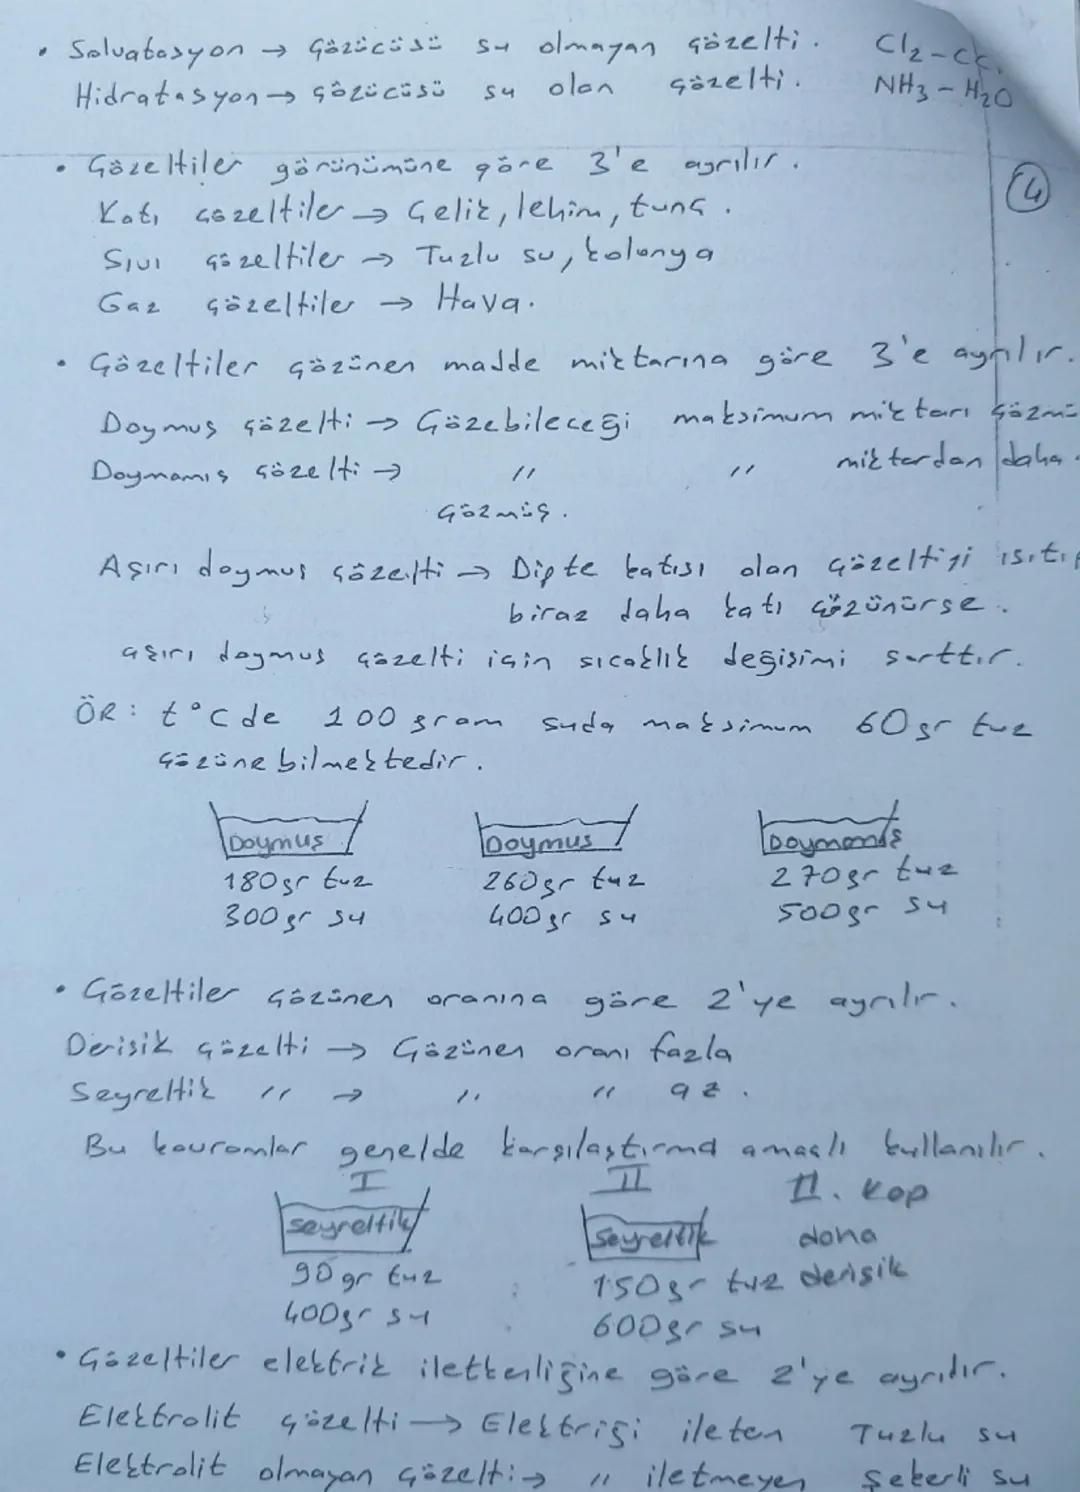 • Solvatasyon → Çözücüsü su olmayan çözelti. Cl2-CCl
Hidratasyon → çözücüsü su olan çözelti. NH3-H2O
④
• Çözeltiler görünümüne göre 3'e ayrılır.
Katı çözeltiler → Çelik, lehim, tunç.
Sıvı çözeltiler → Tuzlu su, kolonya
Gaz çözeltiler → Hava.
• Çözeltiler çözünen madde miktarına göre 3'e ayrılır.
Doymuş çözelti → Çözebileceği maksimum miktarı çözmü
Doymamış çözelti → " " miktardan daha
çözmüş.
Aşırı doymuş çözelti → Dipte katısı olan çözeltiyi ısıtıp
biraz daha katı çözünürse.
aşırı doymuş çözelti için sıcaklık değişimi şarttır.
ÖR: t°C de 100 gram suda maksimum 60 gr tuz
çözünebilmektedir.
Doymuş Doymuş Doymamış
180gr tuz 260gr tuz 270gr tuz
300gr su 400gr su 500gr su
• Çözeltiler çözünen oranına göre 2'ye ayrılır.
Derişik çözelti → Çözünen oranı fazla
Seyreltik " → " " az.
Bu kavramlar genelde karşılaştırma amaçlı kullanılır.
I II II. kap
seyreltik Seyreltik daha
90gr tuz 150gr tuz derişik
400gr su 600gr su
• Çözeltiler elektrik iletkenliğine göre 2'ye ayrılır.
Elektrolit çözelti → Elektriği ileten Tuzlu su
Elektrolit olmayan çözelti → " iletmeyen Şekerli su